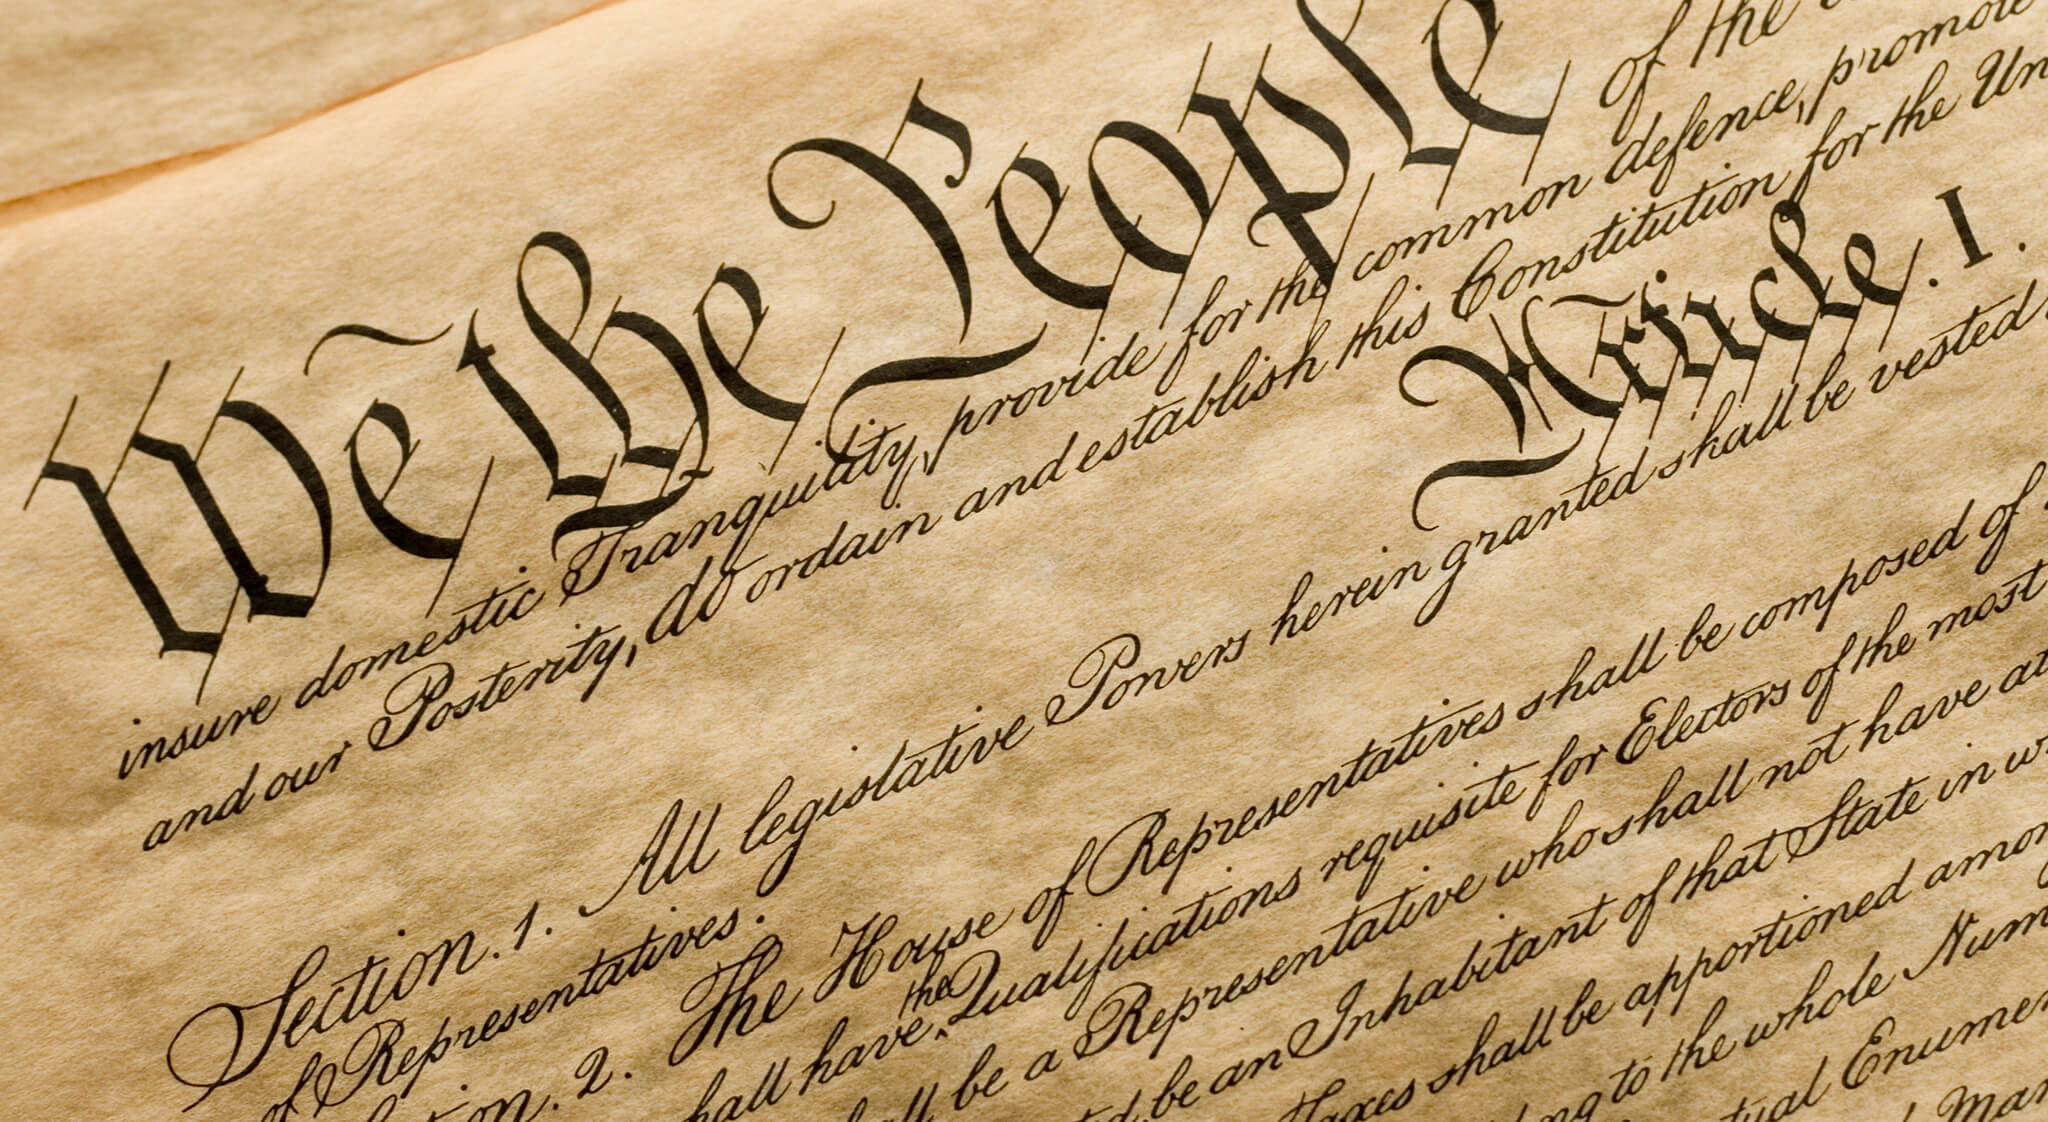 We the People of the
insure domestic Tranquility, provide for the common defence, promote
and our Posterity, do ordain and establish this Constitution for the Un
Article. I.
Section. 1. All legislative Powers herein granted shall be vested
of Representatives.
tion. 2. The House of Representatives shall be composed of
the
hall have Qualifications requisite for Electors of the most
all be a Representative who shall not have at
ted, be an Inhabitant of that State in w
Taxes shall be apportioned amon
ding to the whole Num
tual Enumer